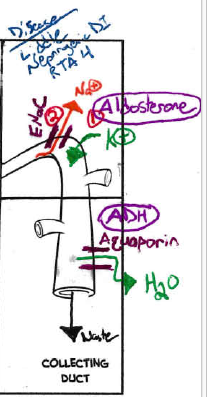 Disease
Liddle
Nephrogenic DI
RTA 4
Na+
ENaC
2
1
Aldosterone
K+
ADH
Aquaporin
H2O
Waste
COLLECTING
DUCT